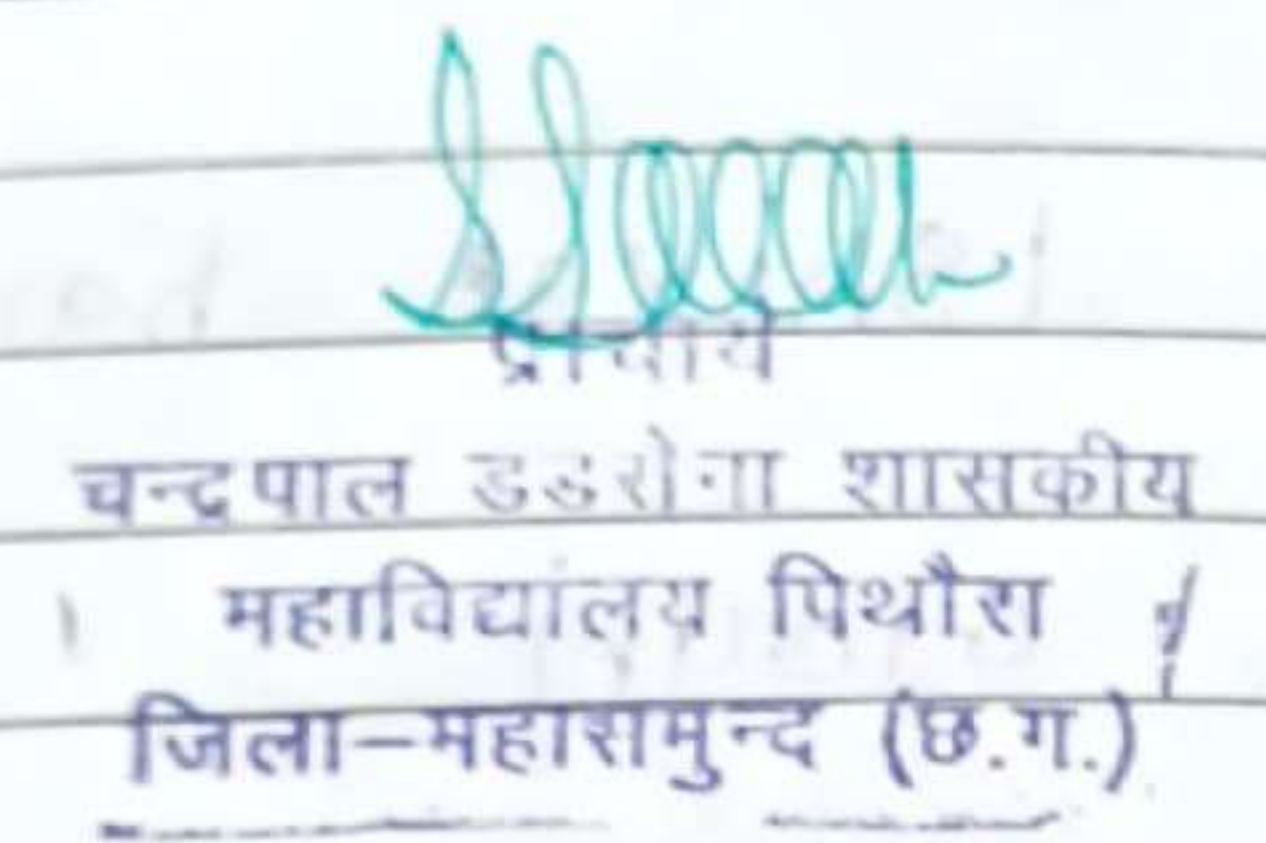 प्राचार्य
चन्द्रपाल डडसेना शासकीय
महाविद्यालय पिथौरा
जिला–महासमुन्द (छ.ग.)